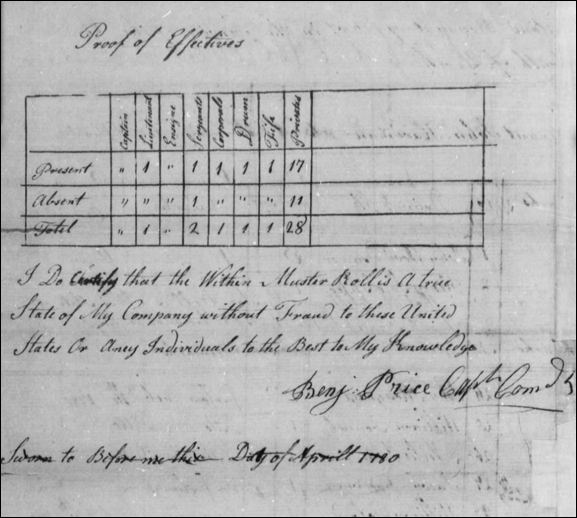 Proof of Effectives
Captain Lieutenant Ensigne Serjants Corporals Drum Fife Privates
Present " 1 " 1 1 1 1 17
Absent " " " 1 " " " 11
Totel " 1 " 2 1 1 1 28
I Do Certify that the Within Muster Roll is A true
State of My Company without Fraud to these United
States Or Aney Individuals to the Best to My Knowledge
Benj Price Capt Comdt
Sworn to Before me this Day of Aprill 1780